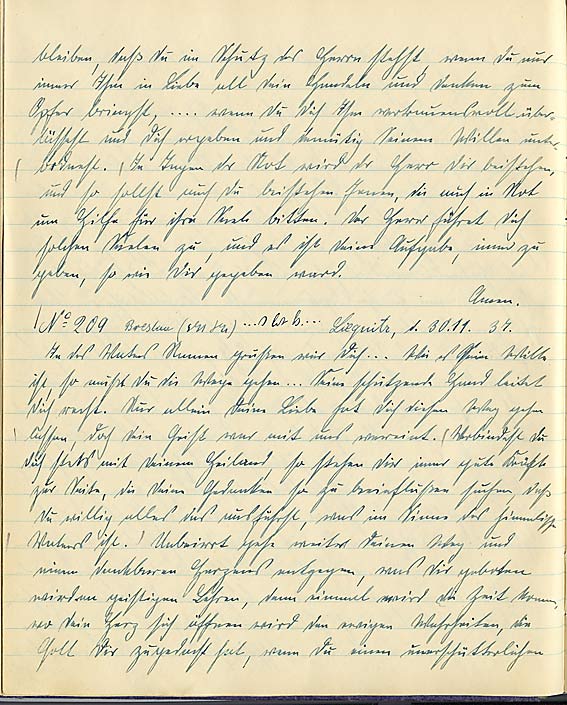 bleiben, daß du im Schutz des Herrn stehst, wenn du nur
immer Ihm in Liebe all dein Handeln und Denken zum
Opfer bringst, .... wenn du dich Ihm vertrauensvoll über-
lässest und dich ergeben und demütig Seinem Willen unter-
ordnest. In Tagen der Not wird der Herr dir beistehen,
und so sollst auch du beistehen jenen, die auch in Not
um Hilfe für ihre Seele bitten. Der Herr führet dich
solchen Seelen zu, und es ist deine Aufgabe, immer zu
geben, so wie dir gegeben ward.
Amen.
No 209 Breslau Liegnitz, d. 30.11. 37.
In des Vaters Namen grüßen wir dich... Wo es Sein Wille
ist, so mußt du die Wege gehen... Seine schützende Hand leitet
dich recht. Nur allein deine Liebe hat dich diesen Weg gehen
lassen, doch dein Geist war mit uns vereint. Verbindest du
dich stets mit deinem Heiland, so stehen dir immer gute Kräfte
zur Seite, die deine Gedanken so zu beeinflußen suchen, daß
du willig alles das ausführst, was im Sinne des himmlischen
Vaters ist. Unbeirrt gehe weiter deinen Weg und
nimm dankbaren Herzens entgegen, was dir geboten
wird an geistigen Lehren, denn einmal wird die Zeit kommen,
wo dein Herz sich öffnen wird den ewigen Wahrheiten, die
Gott dir zugedacht hat, wenn du einen unerschütterlichen